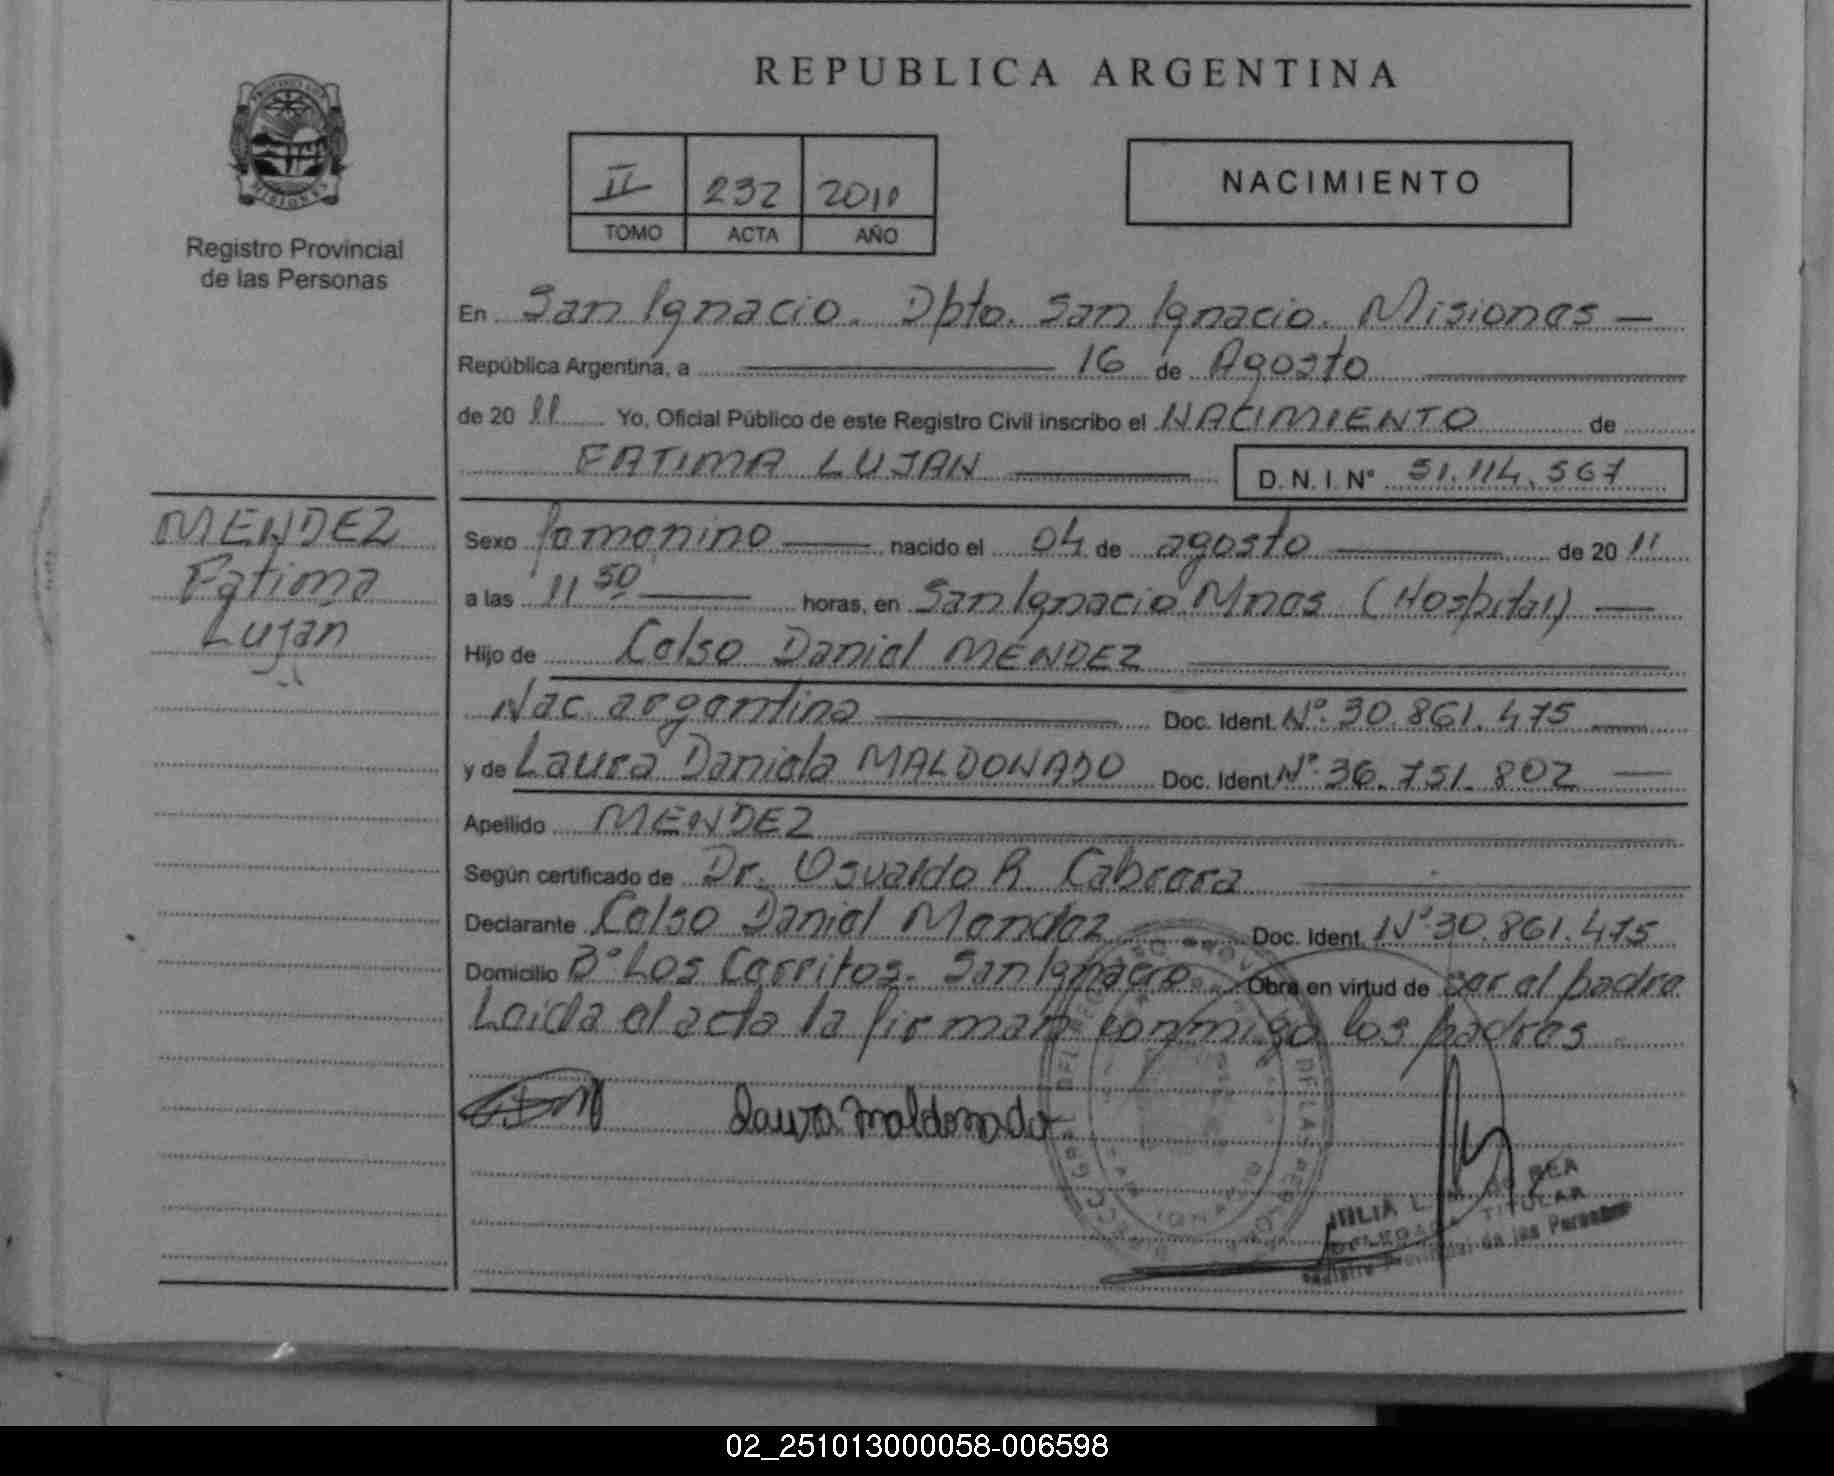 REPUBLICA ARGENTINA
II 232 2011
TOMO ACTA AÑO
NACIMIENTO
MISIONES
Registro Provincial
de las Personas
En San Ignacio. Dpto. San Ignacio. Misiones —
República Argentina, a 16 de Agosto
de 20 11 Yo, Oficial Público de este Registro Civil inscribo el NACIMIENTO de
FATIMA LUJAN D. N. I. N° 51.114.567
MENDEZ
Fatima
Lujan
Sexo femenino nacido el 04 de agosto de 20 11
a las 11 50 horas, en San Ignacio Mnes (Hospital) —
Hijo de Celso Daniel MENDEZ
Nac. argentina Doc. Ident. N° 30.861.475
y de Laura Daniela MALDONADO Doc. Ident. N° 36.751.802
Apellido MENDEZ
Según certificado de Dr. Osvaldo R. Cabrera
Declarante Celso Daniel Mendez Doc. Ident. N° 30.861.475
Domicilio B° Los Cerritos. San Ignacio. Obra en virtud de ser el padre
Leida el acta la firman conmigo los padres
Laura maldonado
JULIA L.
DELEGADA TITULAR
Registro Provincial de las Personas
02_251013000058-006598